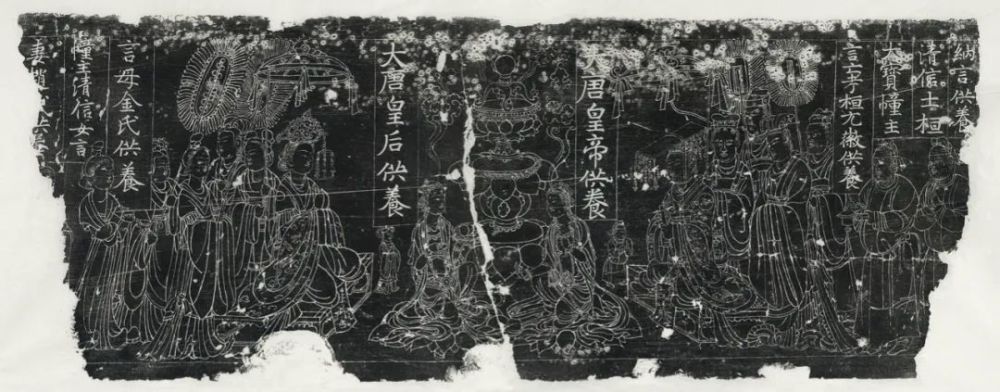 納言供養
清信士桓
大寶幢主
言 桓元 供養
大唐皇帝供養
大唐皇后供養
言母金氏供養
幢主清信女言
妻趙